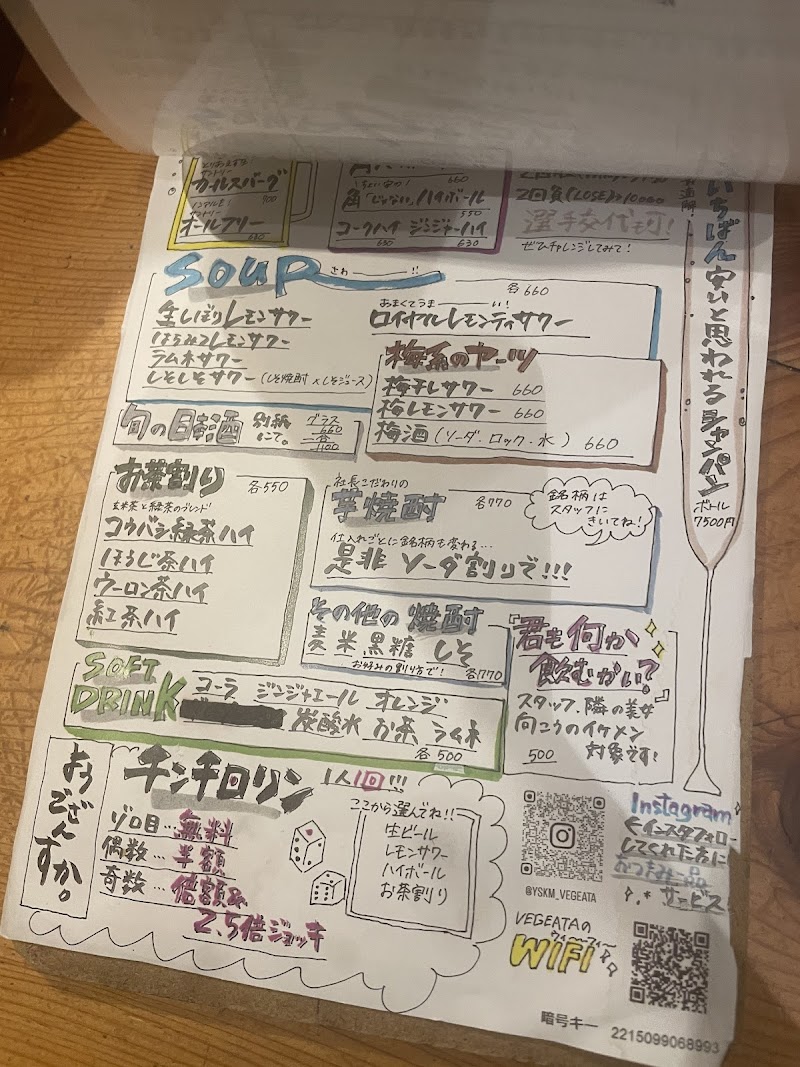 とりあえずな!
サントリー
カールスバーグ
700
ノンアルも!
サントリー
オールフリー
660
(ちょい安の!)
角「じゃない」ハイボール
550
コークハイ ジンジャーハイ
630 630
2回負(LOSE)→10000
選手交代も可!
ぜひチャレンジしてみて!
いちばん安いと思われるシャンパン
ボトル
7500円
SOUR
さわー!!
各660
生しぼりレモンサワー
はちみつレモンサワー
ラムネサワー
しそしそサワー (しそ焼酎×しそジュース)
あまくてうまーい!
ロイヤルレモンティサワー
梅系のヤーツ
梅干しサワー 660
梅レモンサワー 660
梅酒 (ソーダ・ロック・水) 660
旬の日本酒
別紙にて。
グラス
660
二合
1100
お茶割り
各550
玄米茶と緑茶のブレンド
コウバシ緑茶ハイ
ほうじ茶ハイ
ウーロン茶ハイ
紅茶ハイ
社長こだわりの
芋焼酎
各770
銘柄は
スタッフに
きいてね!
仕入れごとに銘柄も変わる…
是非 ソーダ割りで!!!
その他の焼酎
麦 米 黒糖 しそ
お好みの割り方で! 各770
『君も何か
飲むかい?』
スタッフ、隣の美女
向こうのイケメン
対象です!
500
SOFT
DRINK
コーラ ジンジャエール オレンジ
炭酸水 お茶 ラムネ
各500
ようござんすか。
チンチロリン
1人1回!!!
ゾロ目… 無料
偶数… 半額
奇数… 倍額&
2.5倍ジョッキ
ここから選んでね!!
生ビール
レモンサワー
ハイボール
お茶割り
@YSKM_VEGEATA
Instagram
←インスタフォロー
してくれた方に
おつまみ一品
サービス
VEGEATAの
ウィーフィー
WIFI
暗号キー 2215099068993